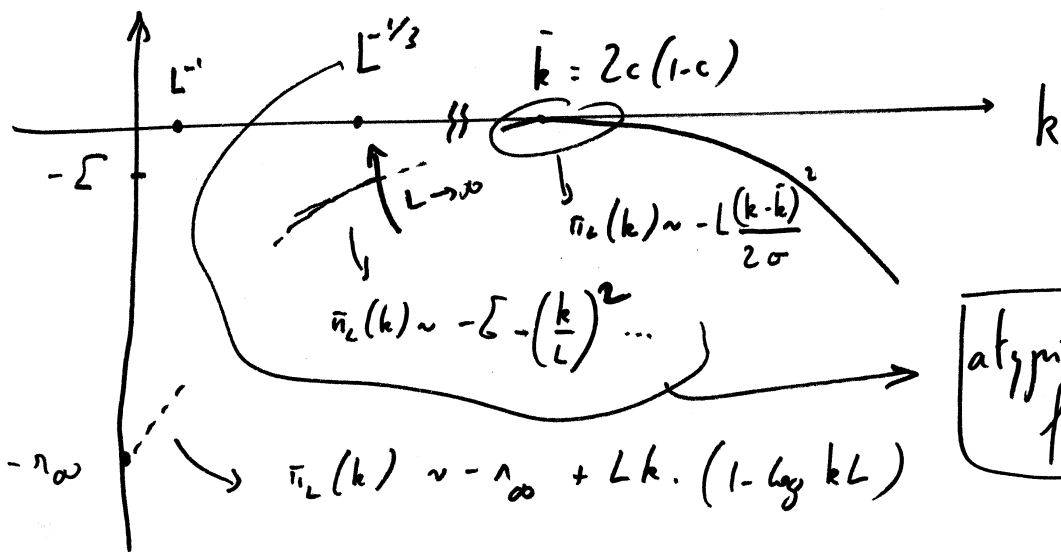 L⁻¹
L⁻¹/³
k̄ = 2c(1-c)
k
- Σ
L→∞
π̄_L(k) ~ -L (k-k̄)² / 2σ
π̄_L(k) ~ -Σ - (k/L)² ...
- r_∞
π̄_L(k) ~ - r_∞ + Lk. (1-log kL)